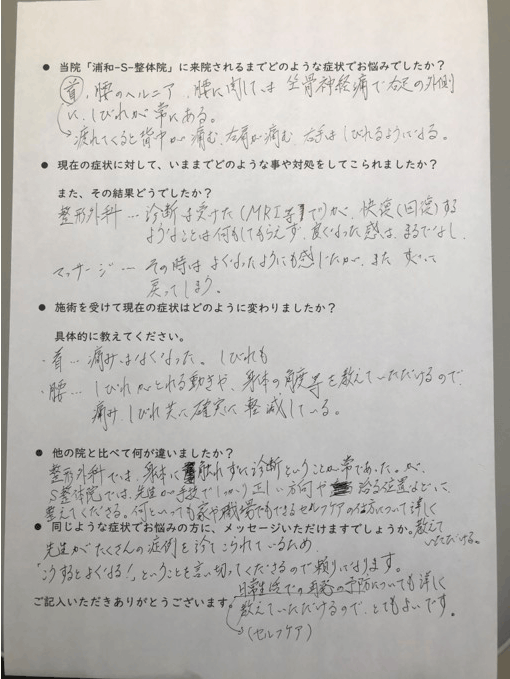 ● 当院「浦和-S-整体院」に来院されるまでどのような症状でお悩みでしたか？
首、腰のヘルニア 腰に関しては坐骨神経痛で右足の外側
に、しびれが常にある。
→疲れてくると背中が痛む、右肩が痛む、右手はしびれるようになる。
● 現在の症状に対して、いままでどのような事や対処をしてこられましたか？
また、その結果どうでしたか？
整形外科… 診断は受けた(MRI等まで)が、快復(回復)する
ようなことは何もしてもらえず、良くなった感は、まるでなし。
マッサージ… その時はよくなったようにも感じたが、また
戻ってしまう。
● 施術を受けて現在の症状はどのように変わりましたか？
具体的に教えてください。
・首… 痛みはなくなった、しびれも
・腰… しびれがとれる動きや、身体の角度等を教えていただけるので、
痛み、しびれ共に確実に軽減している。
● 他の院と比べて何が違いましたか？
整形外科では、身体に触れずに診断ということが常であった。が、
S整体院では、先生が手技でしっかり正しい方向や治る位置などに、
整えてくださる。何といっても家や職場でもできるセルフケアの仕方について詳しく
教えて
いただける。
● 同じような症状でお悩みの方に、メッセージいただけますでしょうか。
先生がたくさんの症例を診てこられているため
「こうするとよくなる！」ということを言い切ってくださるので頼りになります。
日常生活での再発の予防についても詳しく
ご記入いただきありがとうございます。
教えていただけるので、とてもよいです。
→(セルフケア)